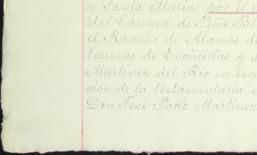 y Santa María; por el
del Cármen de Peña Bl
el Rancho de Alamos de
terrenos de Encinillas y a
Martínez del Rio en leg
cion de la testamentaría
Don José Pablo Martínez